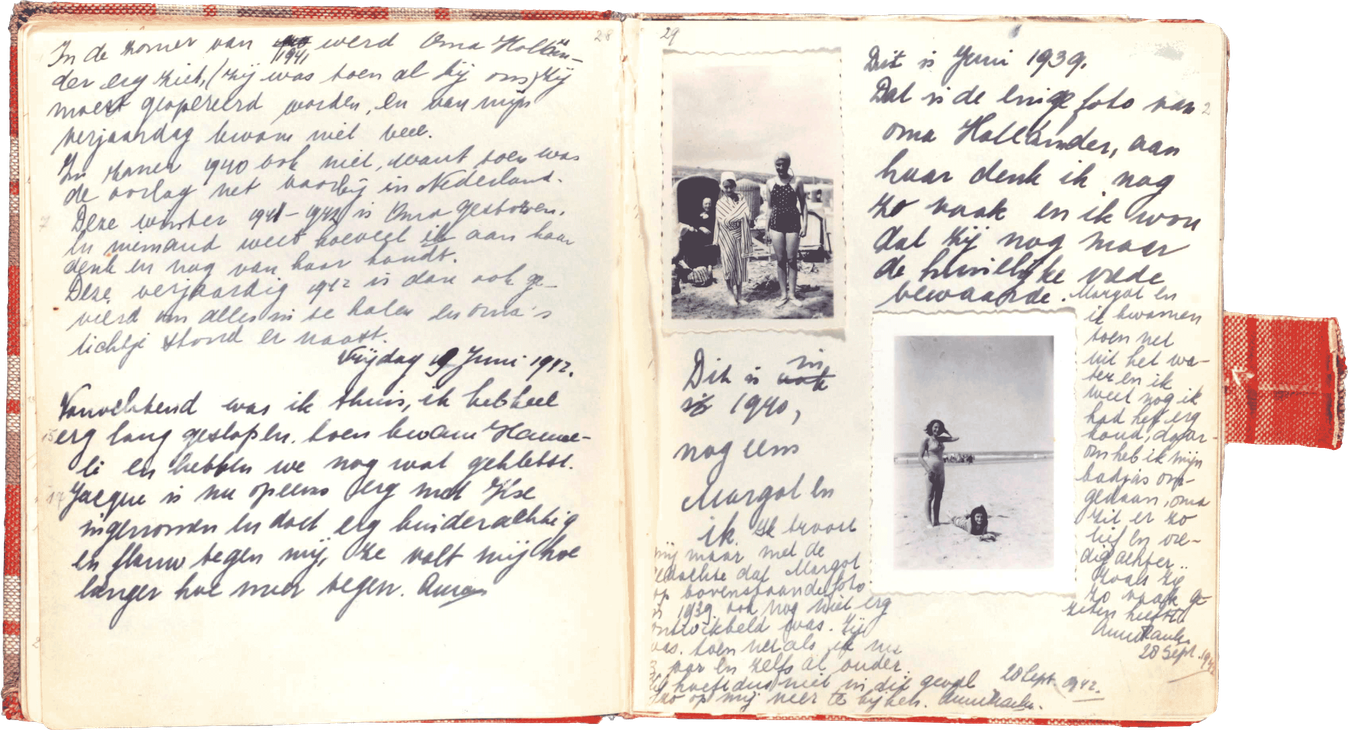 28
In de zomer van 1941 werd Oma Hollän-
der erg ziek, (zij was toen al bij ons) zij
moest geopereerd worden, en van mijn
verjaardag kwam niet veel.
In zomer 1940 ook niet, want toen was
de oorlog net voorbij in Nederland.
Deze winter 1941-1942 is Oma gestorven.
En niemand weet hoeveel ik aan haar
denk en nog van haar houdt.
Deze verjaardig 1942 is dan ook ge-
vierd om alles in te halen en Oma's
lichtje stond er naast.
Vrijdag 19 Juni 1942.
Vanochtend was ik thuis, ik heb heel
erg lang geslapen, toen kwam Hanne-
li en hebben we nog wat gekletst.
Jacque is nu opeens erg met Ilse
ingenomen en doet erg kinderachtig
en flauw tegen mij, ze valt mij hoe
langer hoe meer tegen. Anne
29
Dit is Juni 1939.
Dat is de enige foto van
oma Holländer, aan
haar denk ik nog
zo vaak en ik wou
dat zij nog maar
de huiselijke vrede
bewaarde. Margot en
ik kwamen
toen net
uit het wa-
ter en ik
weet nog ik
had het erg
koud, daar-
om heb ik mijn
badjas om-
gedaan, oma
zit er zo
lief en vre-
dig achter..
Zoals ze
zo vaak ge-
zeten heeft
Anne Frank.
28 Sept. 1942
Dit is in
1940,
nog eens
Margot en
ik. Ik troost
mij maar met de
gedachte dat Margot
op bovenstaande foto
in 1939 ook nog niet erg
ontwikkeld was. Zij
was toen net als ik nu
jaar en zelfs al ouder.
Zij hoeft dus niet in dit geval
zo op mij neer te kijken. Anne Frank.
28 Sept. 1942.